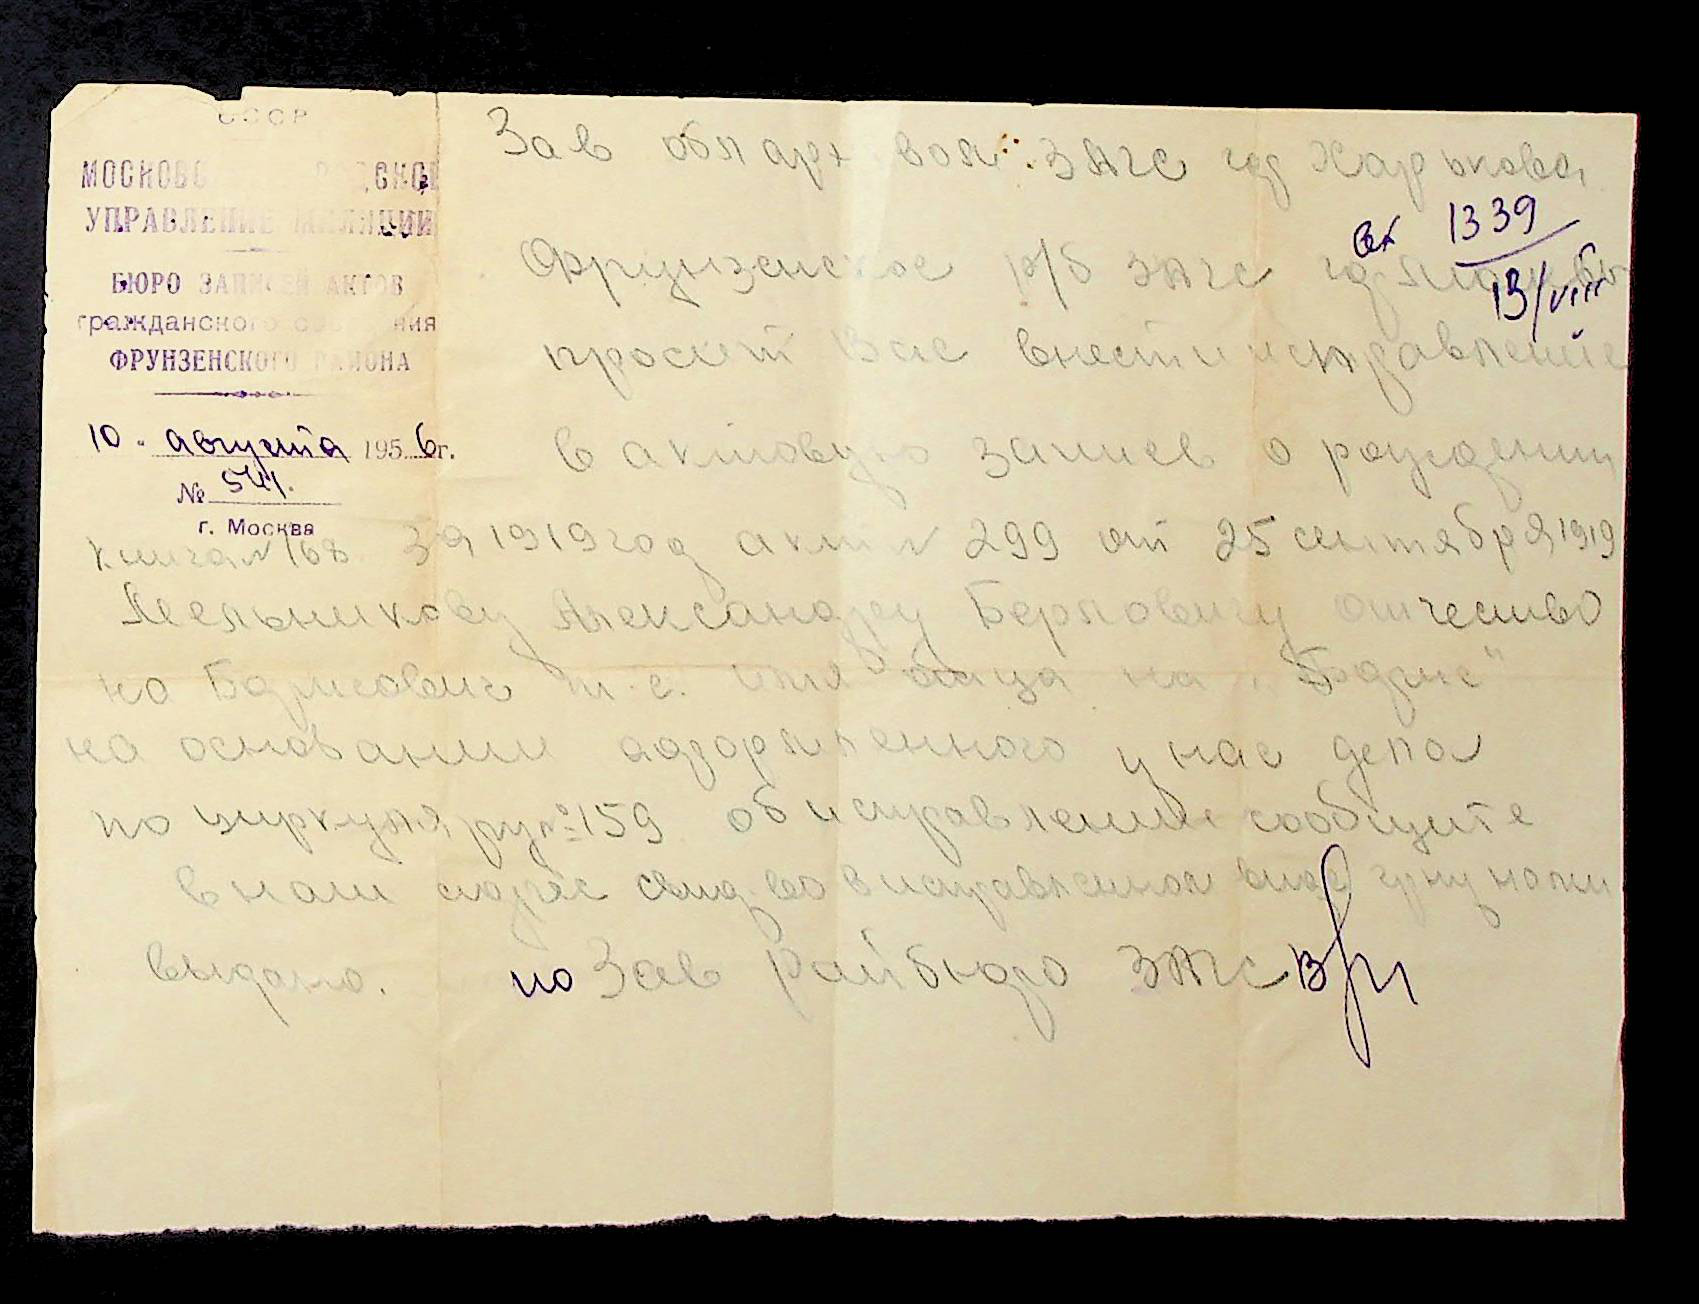 СССР
МОСКОВСКОЕ ГОРОДСКОЕ
УПРАВЛЕНИЕ МИЛИЦИИ
БЮРО ЗАПИСЕЙ АКТОВ
гражданского состояния
ФРУНЗЕНСКОГО РАЙОНА
10 августа 1956г.
№ 541.
г. Москва
Зав облархивом ЗАГС гор Харькова
Вх 1339
13/VIII
Фрунзенское р/б ЗАГС гор Москвы
просит Вас внести исправление
в актовую запись о рождении
книга № 168 за 1919 год акт № 299 от 25 сентября 1919
Мельникову Александру отчество
на Борисович т.е. имя отца на "Борис"
на основании у нас дела
по циркуляру № 159 об исправлении сообщите
в наш адрес в исправленном виде
выдано. но Зав Райбюро ЗАГС